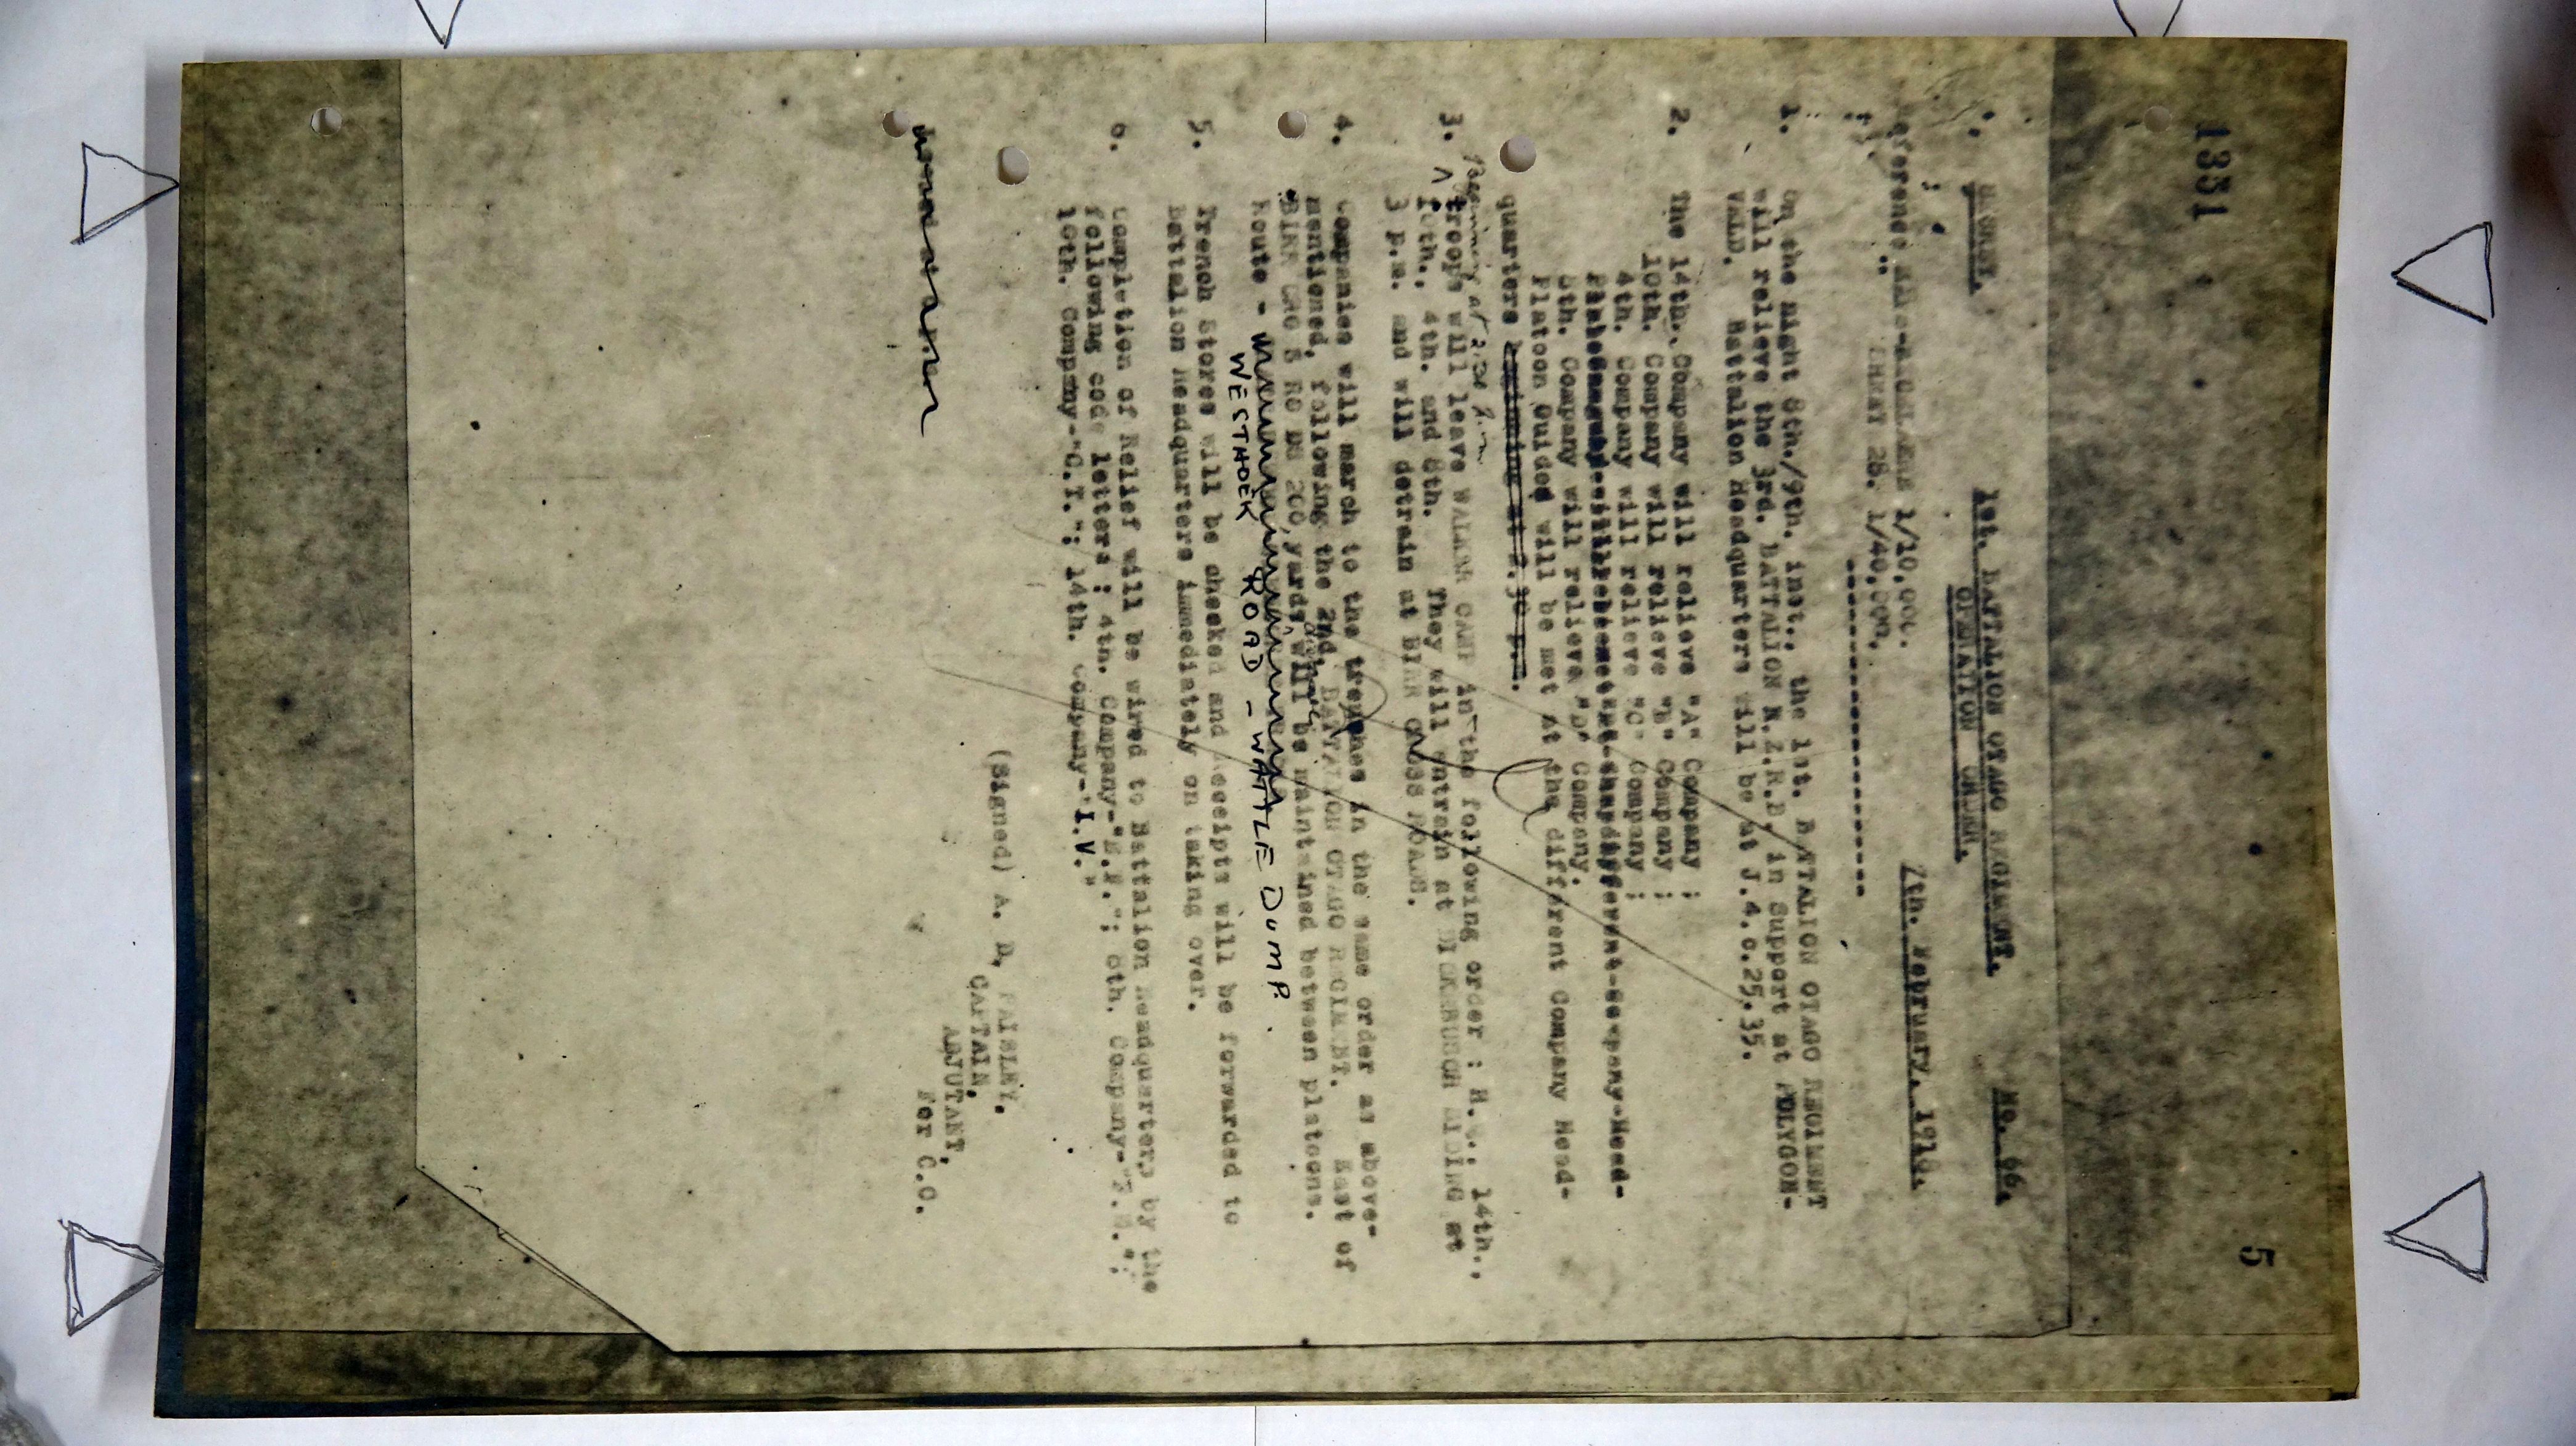 1351
5
SECRET.
1st. BATTALION OTAGO REGIMENT. No. 66.
OPERATION ORDER.
7th. February. 1918.
1/10,000.
SHEET 28. 1/40,000.
1. On the night 8th./9th. inst., the 1st. BATTALION OTAGO REGIMENT
will relieve the 3rd. BATTALION N.Z.R.B. in Support at POLYGON-
VALD. Battalion Headquarters will be at J.4.c.25.35.
2. The 14th. Company will relieve "A" Company ;
10th. Company will relieve "B" Company ;
4th. Company will relieve "C" Company ;
8th. Company will relieve "D" Company.
Platoon Guides will be met at the different Company Head-
quarters beginning at 2.30 p.m.
Beginning at 2.30 p.m
3. troops will leave WALKER CAMP in the following order : H.Q.; 14th.,
10th., 4th. and 8th. They will entrain at DICKEBUSCH SIDING at
3 p.m. and will detrain at BIRR CROSS ROADS.
4. Companies will march to the trenches in the same order as above-
mentioned, following the 2nd. BATTALION OTAGO REGIMENT. East of
BIRR CROSS ROADS 200 yards will be maintained between platoons.
Route -
WESTHOEK ROAD - WATTLE DUMP.
5. Trench Stores will be checked and receipts will be forwarded to
Battalion Headquarters immediately on taking over.
6. Completion of Relief will be wired to Battalion Headquarters by the
following code letters : 4th. Company- 8th. Company-
10th. Company-"C.T."; 14th. Company-"I.V."
(Signed) A. D. PAISLEY.
CAPTAIN,
ADJUTANT,
For C.O.